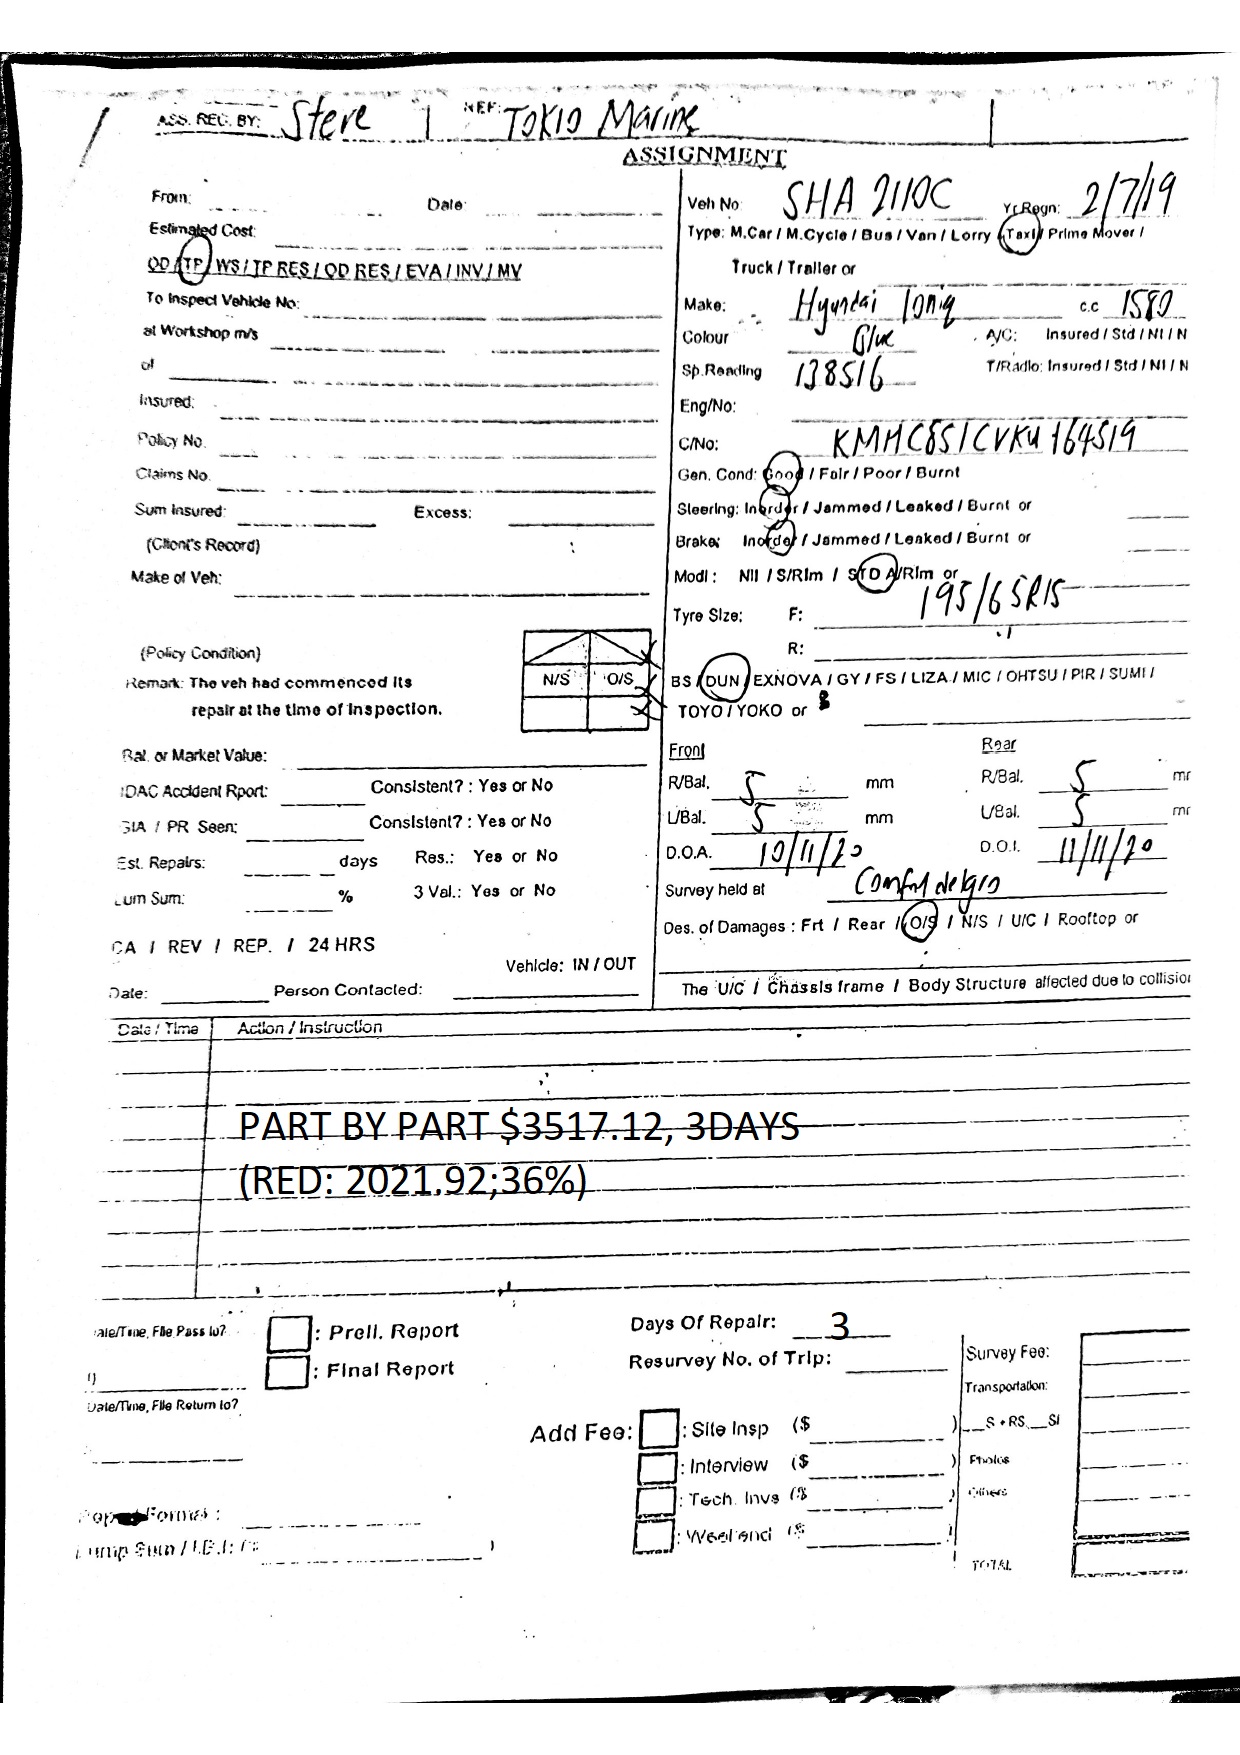 ASS. REC. BY: Steve REF: TOKIO Marine
ASSIGNMENT
From: Date:
Estimated Cost:
OD / TP / WS / TP RES / OD RES / EVA / INV / MV
To Inspect Vehicle No:
at Workshop m/s
of
Insured:
Policy No.
Claims No.
Sum Insured: Excess:
(Client's Record)
Make of Veh:
(Policy Condition)
Remark: The veh had commenced its
repair at the time of inspection.
N/S O/S
Bal. or Market Value:
IDAC Accident Rport: Consistent? : Yes or No
GIA / PR Seen: Consistent? : Yes or No
Est. Repairs: days Res.: Yes or No
Lum Sum: % 3 Val.: Yes or No
CA / REV / REP. / 24 HRS
Vehicle: IN / OUT
Date: Person Contacted:
Veh No: SHA 2110C Yr Regn: 2/7/19
Type: M.Car / M.Cycle / Bus / Van / Lorry / Taxi / Prime Mover /
Truck / Trailer or
Make: Hyundai Ioniq c.c 1580
Colour Blue A/C: Insured / Std / NI / N
Sp.Reading 138516 T/Radio: Insured / Std / NI / N
Eng/No:
C/No: KMHC851CVKU164519
Gen. Cond: Good / Fair / Poor / Burnt
Steering: Inorder / Jammed / Leaked / Burnt or
Brake: Inorder / Jammed / Leaked / Burnt or
Modi : Nil / S/Rim / STD A/Rim or
Tyre Size: F: 195/65R15
R:
BS / DUN / EXNOVA / GY / FS / LIZA / MIC / OHTSU / PIR / SUMI /
TOYO / YOKO or
Front Rear
R/Bal. 5 mm R/Bal. 5 mr
L/Bal. 5 mm L/Bal. 5 mr
D.O.A. 10/11/20 D.O.I. 11/11/20
Survey held at Comfortdelgro
Des. of Damages : Frt / Rear / O/S / N/S / U/C / Rooftop or
The U/C / Chassis frame / Body Structure affected due to collision
Date / Time Action / Instruction
PART BY PART $3517.12, 3DAYS
(RED: 2021.92;36%)
ate/Time, File Pass to?
: Prell. Report
: Final Report
Date/Time, File Return to?
Days Of Repair: 3
Resurvey No. of Trip:
Add Fee: : Site Insp ($ )
: Interview ($ )
: Tech. Invs ($ )
: Weekend ($
Survey Fee:
Transportation:
S + RS SI
Photos
Others
TOTAL
Format :
Lump Sum / I.B.I: ($ )